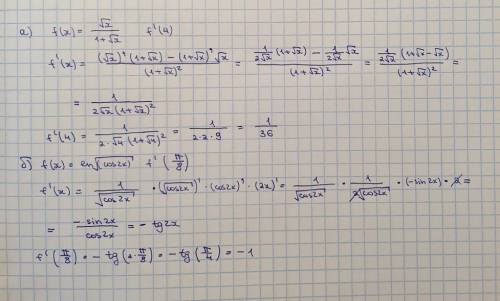 а) f(x) = √x / (1+√x)   f'(4)
f'(x) = ((√x)'(1+√x) − (1+√x)'√x) / (1+√x)² = (1/(2√x) (1+√x) − 1/(2√x) √x) / (1+√x)² = (1/(2√x) (1+√x−√x)) / (1+√x)² =
= 1 / (2√x (1+√x)²)
f'(4) = 1 / (2·√4 (1+√4)²) = 1 / (2·2·9) = 1/36
б) f(x) = ln√(cos2x)   f'(π/8)
f'(x) = 1/√(cos2x) · (√(cos2x))' · (cos2x)' · (2x)' = 1/√(cos2x) · 1/(2√(cos2x)) · (−sin2x) · 2 =
= −sin2x / cos2x = −tg2x
f'(π/8) = −tg(2·π/8) = −tg(π/4) = −1